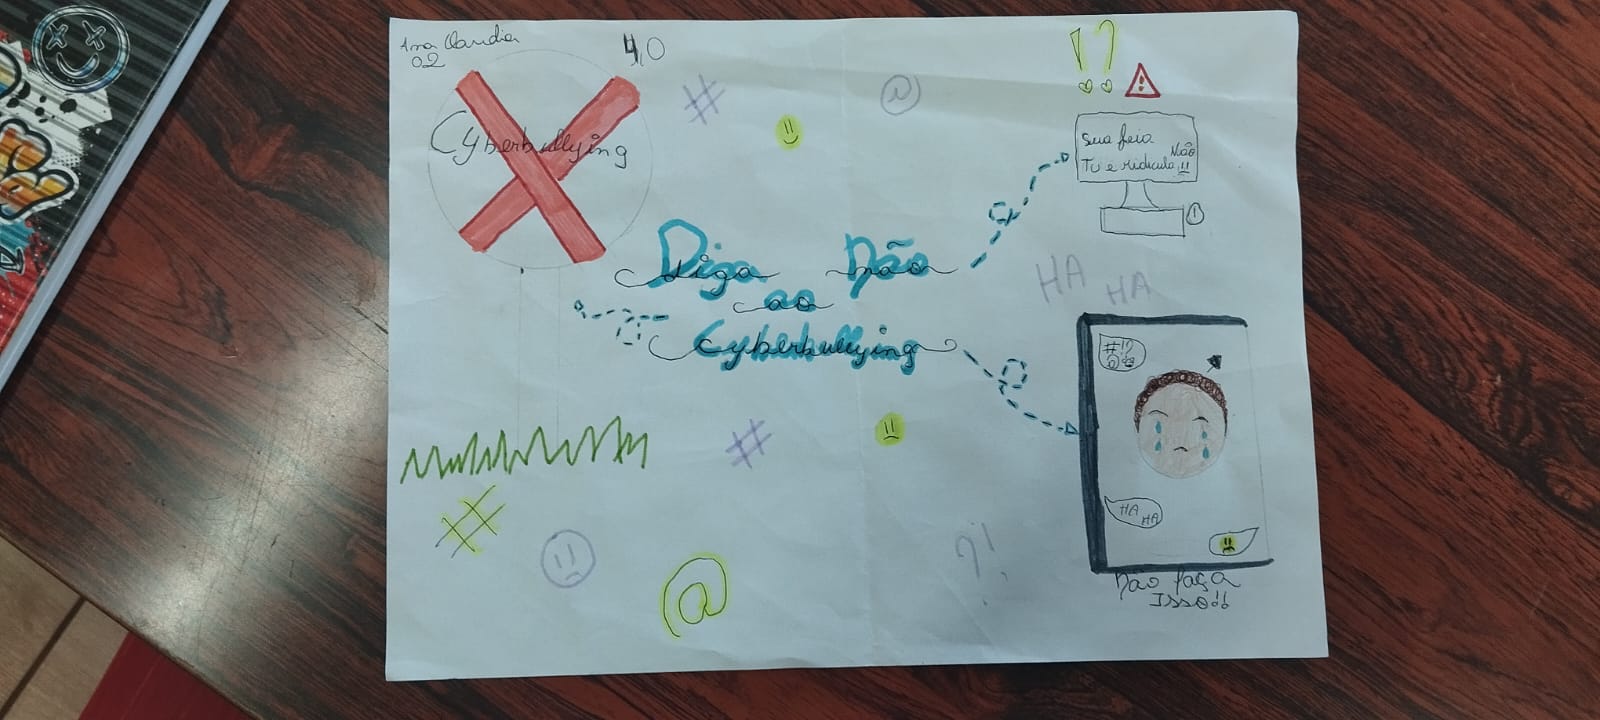 Ana Claudia
02
4,0
Cyberbullying
#
@
!?
Sua feia
Não
Tu é ridicula !!
!
Diga não
ao
Cyberbullying
HA HA
#!?
@
#
#
HA
HA
@
?!
Não faça
Isso!!